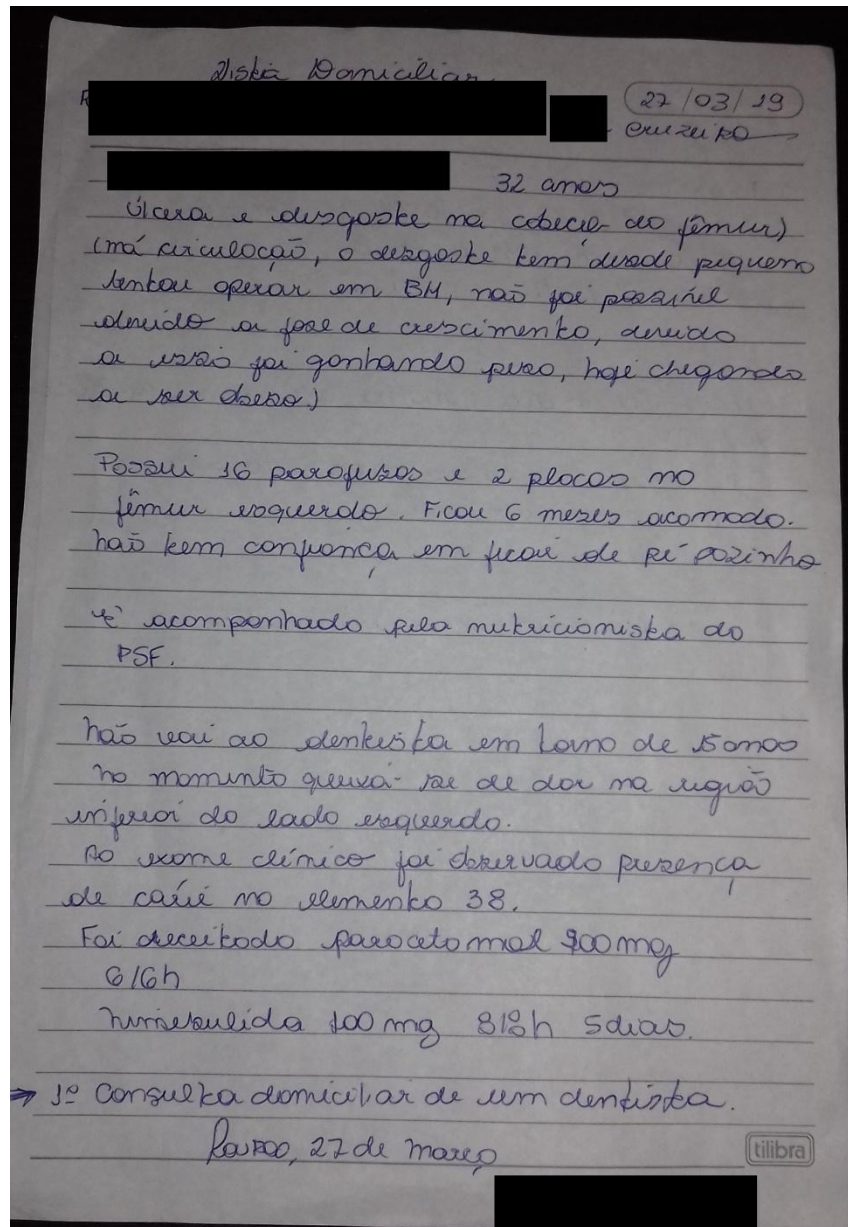 Visita Domiciliar
27/03/19
Cruzeiro
32 anos
Úlcera e desgaste na cabeça do fêmur)
(má circulação, o desgaste tem desde pequeno
tentou operar em BH, não foi possível
devido a fase de crescimento, devido
a isso foi ganhando peso, hoje chegando
a ser obeso)
Possui 16 parafusos e 2 placas no
fêmur esquerdo. Ficou 6 meses acamado.
não tem confiança em ficar de pé sozinho
é acompanhado pela nutricionista do
PSF.
não vai ao dentista em torno de 15 anos
no momento queixa-se de dor na região
inferior do lado esquerdo.
Ao exame clínico foi observado presença
de cárie no elemento 38.
Foi receitado paracetamol mg
6/6h
nimesulida 100 mg 5 dias.
→ 1º Consulta domiciliar de um dentista.
27 de março
tilibra